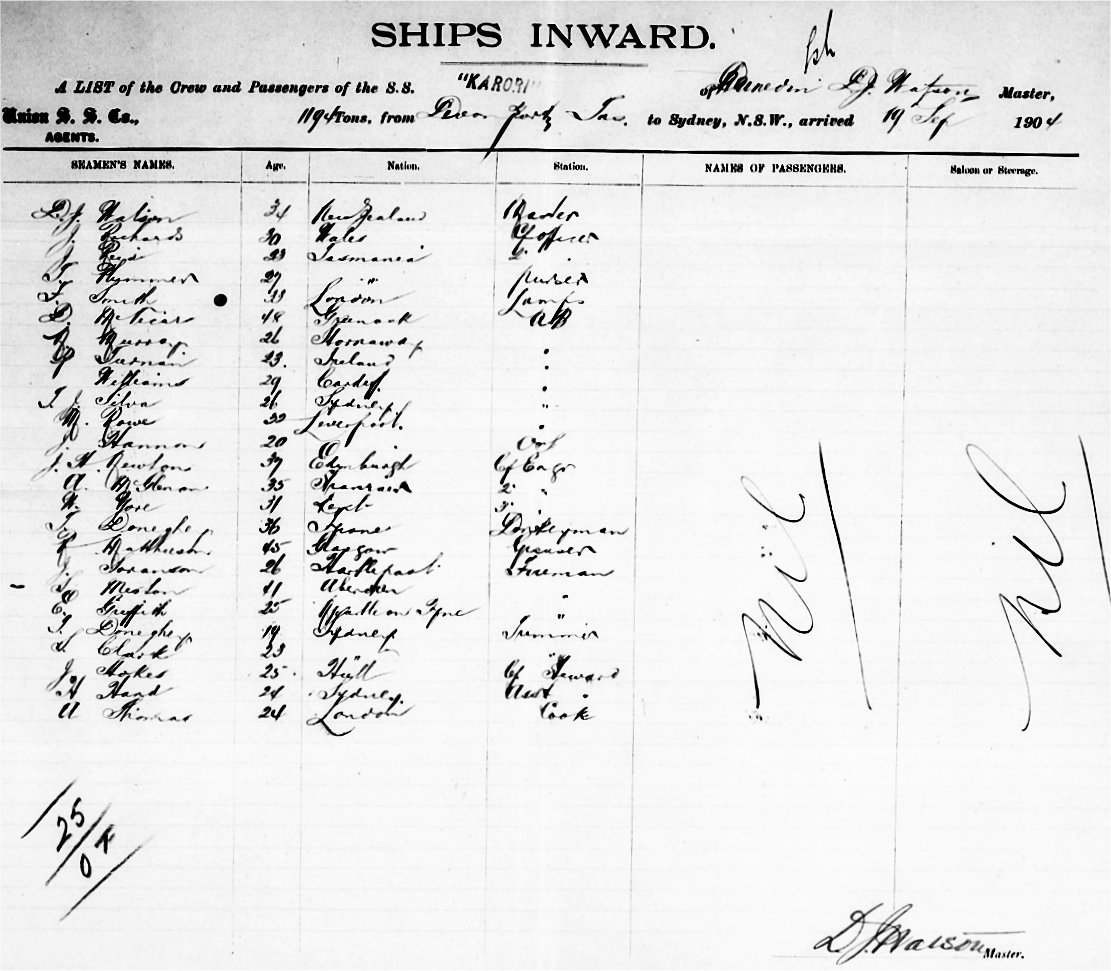 SHIPS INWARD.
A LIST of the Crew and Passengers of the S.S. "KARORI" of Dunedin D.J. Watson Master,
Union S. S. Co., 1194 Tons, from Devonport, Tas. to Sydney, N.S.W., arrived 19 Sep 1904
AGENTS.
SEAMEN'S NAMES. Age. Nation. Station. NAMES OF PASSENGERS. Saloon or Steerage.
D.J. Watson 34 New Zealand Master
J. Richards 30 Wales Cf officer
J. Reid 23 Tasmania 2
T. Plymmer 27 " purser
F. Smith 33 London Lamps
D. McVicar 48 Greenock AB
Murray 26 Stornaway "
23. Ireland "
Williams 29 Cardiff "
T. J. Silva 26 Sydney "
M. Rowe 33 Liverpool. "
J. Hannon 20 "
J. H. Newton 37 Edinburgh Cf Engr
A. 35 2 "
W. 31 3 "
T. Doneghey 36 Donkeyman
Mathieson 45 Glasgow Greaser
J. Soranson 26 Hartlepool Fireman
Weston 41 Aberdeen "
E. Griffith 25 on Tyne "
T. Doneghey 19 Sydney Trimmer
Clark 23 "
J. Stokes 25 Hull Cf Steward
H Hand 24 Sydney Asst "
A Thomas 24 London Cook
Nil Nil
25
0
D J Watson Master.